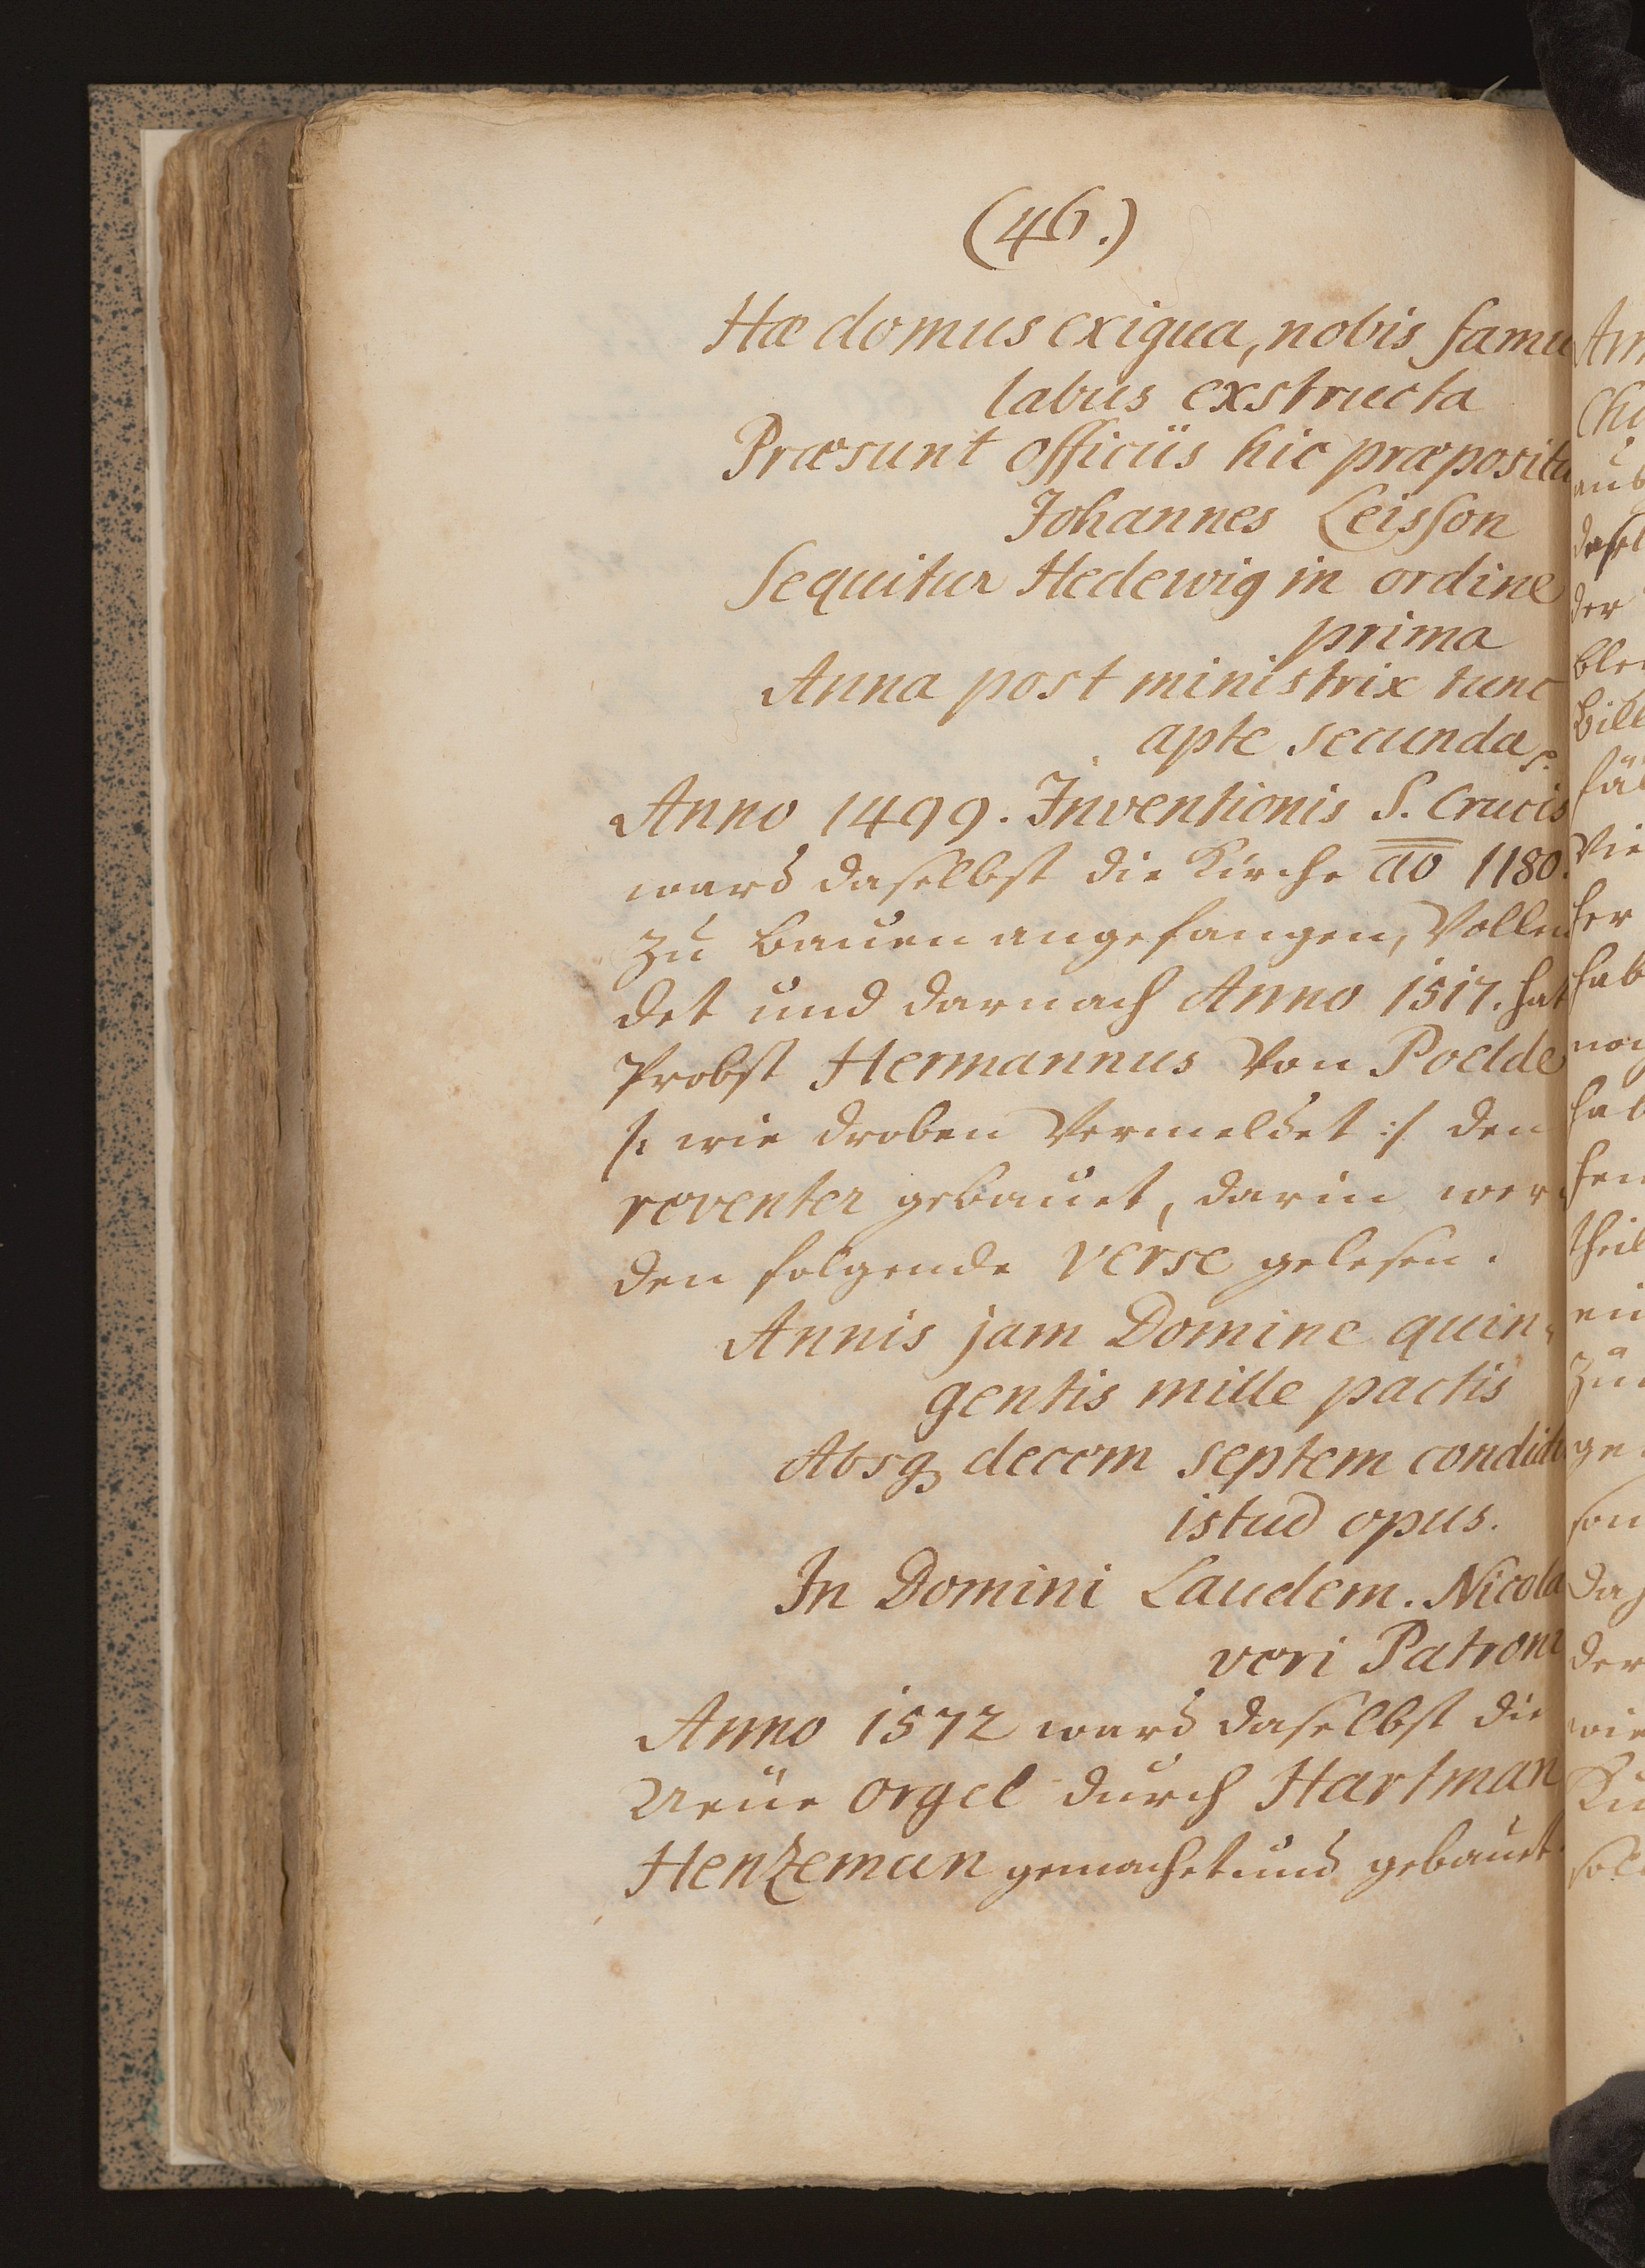 (46.)
Hæ domus exigua, nobis famu
labus exstructa
Præsunt officiis hic præpositu
Johannes Leisson
Sequitur Hedewig in ordine
prima
Anna post ministrix tunc
apte secunda
Anno 1499. Inventionis S. Crucis
ward daselbst die Kirche ao 1180.
zu bauen angefangen, Vollen
det und darnach Anno 1517. hat
Probst Hermannus von Poelde
/: wie droben Vermeldet :/ den
reventer gebauet, darin wer
den folgende Verse gelesen.
Annis jam Domine quin
gentis mille pactis
Absq decem septem condidi
istud opus.
In Domini Laudem. Nicola
veri Patroni
Anno 1572 ward daselbst die
Neue orgel durch Hartman
Henzeman gemachet und gebauet.